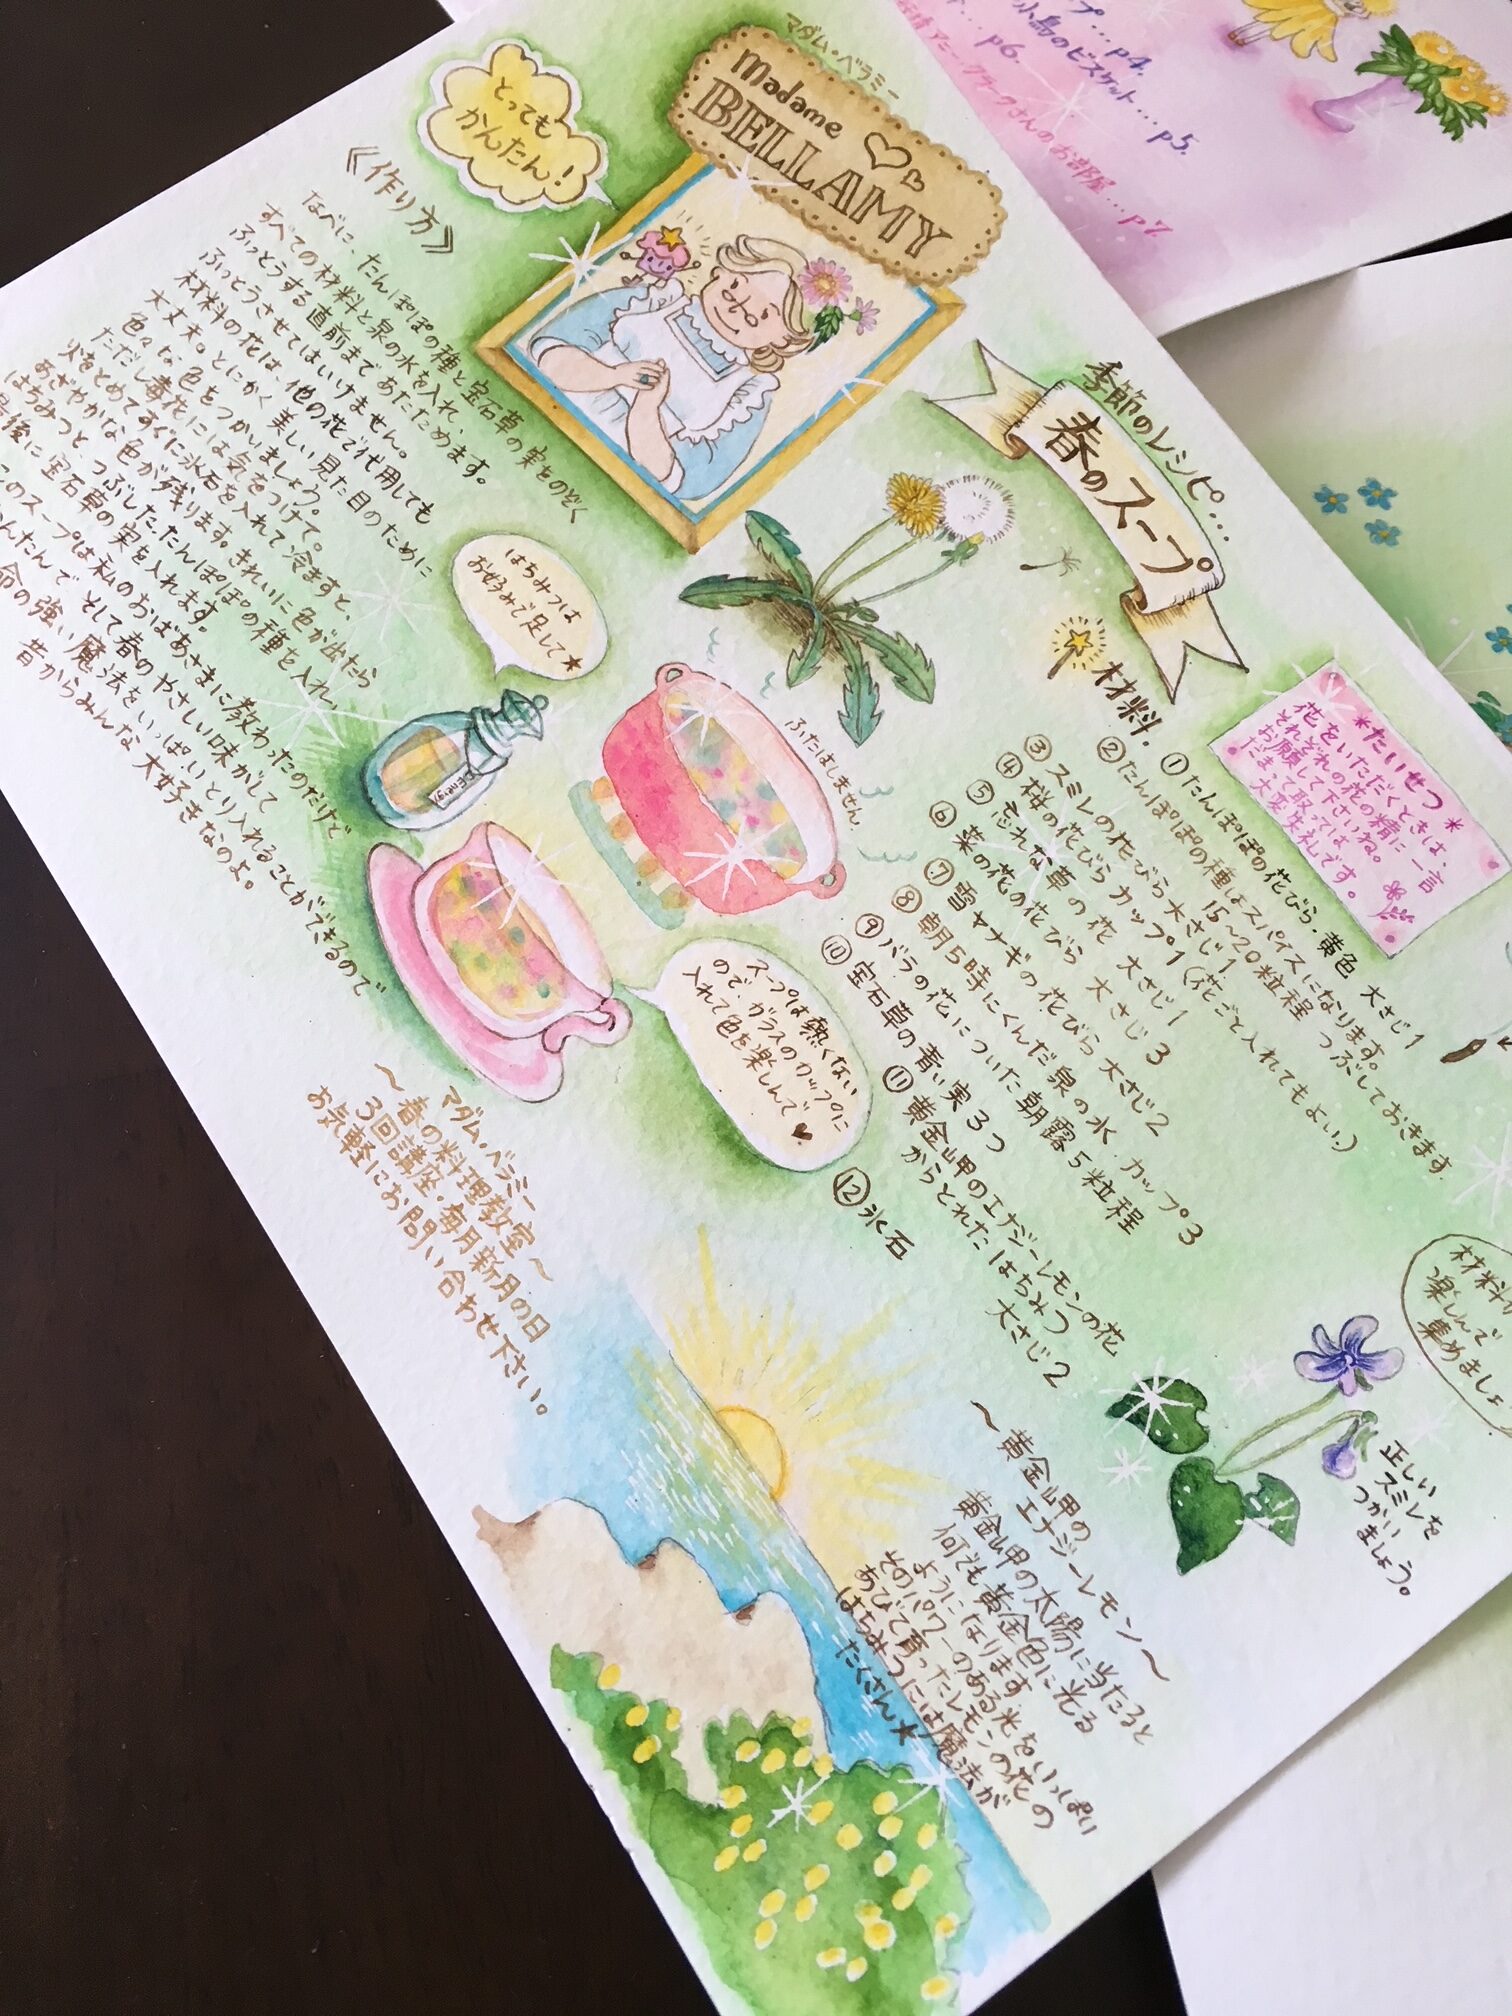 マダム・ベラミー
Madame
BELLAMY
とっても
かんたん!
季節のレシピ...
春のスープ
材料.
①たんぽぽの花びら・黄色 大さじ1
②たんぽぽの種はスパイスになります。
15~20粒程 つぶしておきます.
③スミレの花びら大さじ1
④桜の花びらカップ1(花ごと入れてもよい.)
⑤忘れな草の花 大さじ1
⑥菜の花の花びら 大さじ3
⑦雪ヤナギの花びら大さじ2
⑧朝5時にくんだ泉の水.カップ3
⑨バラの花についた朝露5粒程
⑩宝石草の青い実3つ
⑪黄金岬のエナジーレモンの花
からとれたはちみつ
大さじ2
⑫氷石
*たいせつ*
花をいただくときは、
それぞれの花の精に一言
お願して下さいね。
だまって取っては
大変失礼です。
《作り方》
なべに、たんぽぽの種と宝石草の実をのぞく
すべての材料と泉の水を入れ、
ふっとうする直前まであたためます。
ふっとうさせてはいけません。
材料の花は、他の花で代用しても
大丈夫。とにかく美しい見た目のために
色々な色をつかいましょう。
ただし毒花には気をつけて。
火をとめてすぐに氷石を入れて冷ますと、
あざやかな色が残ります。きれいに色が出たら
はちみつと、つぶした.たんぽぽの種を入れ、
最後に宝石草の実を入れます。
このスープは私のおばあさまに教わったのだけど
かんたんで そして春のやさしい味がして
命の強い魔法をいっぱいとり入れることができるので
昔からみんな大好きなのよ。
はちみつは
お好みで足して★
Energy
ふたはしません.
スープは熱くない
ので、ガラスのカップに
入れて色を楽しんで♥
マダム・ベラミー
~春の料理教室~
3回講座・毎月新月の日
お気軽にお問い合わせ下さい。
材料
楽しんで
集めましょ
正しい
スミレを
つかい
ましょう。
~黄金岬の
エナジーレモン~
黄金岬の太陽に当たると
何でも黄金色に光る
ようになります.
そのパワーのある光をいっぱい
あびて育ったレモンの花の
はちみつには魔法が
たくさん★
プ...p4.
小鳥のビスケット...p5.
...p6.
アニー・クラークさんのお部屋...p7.